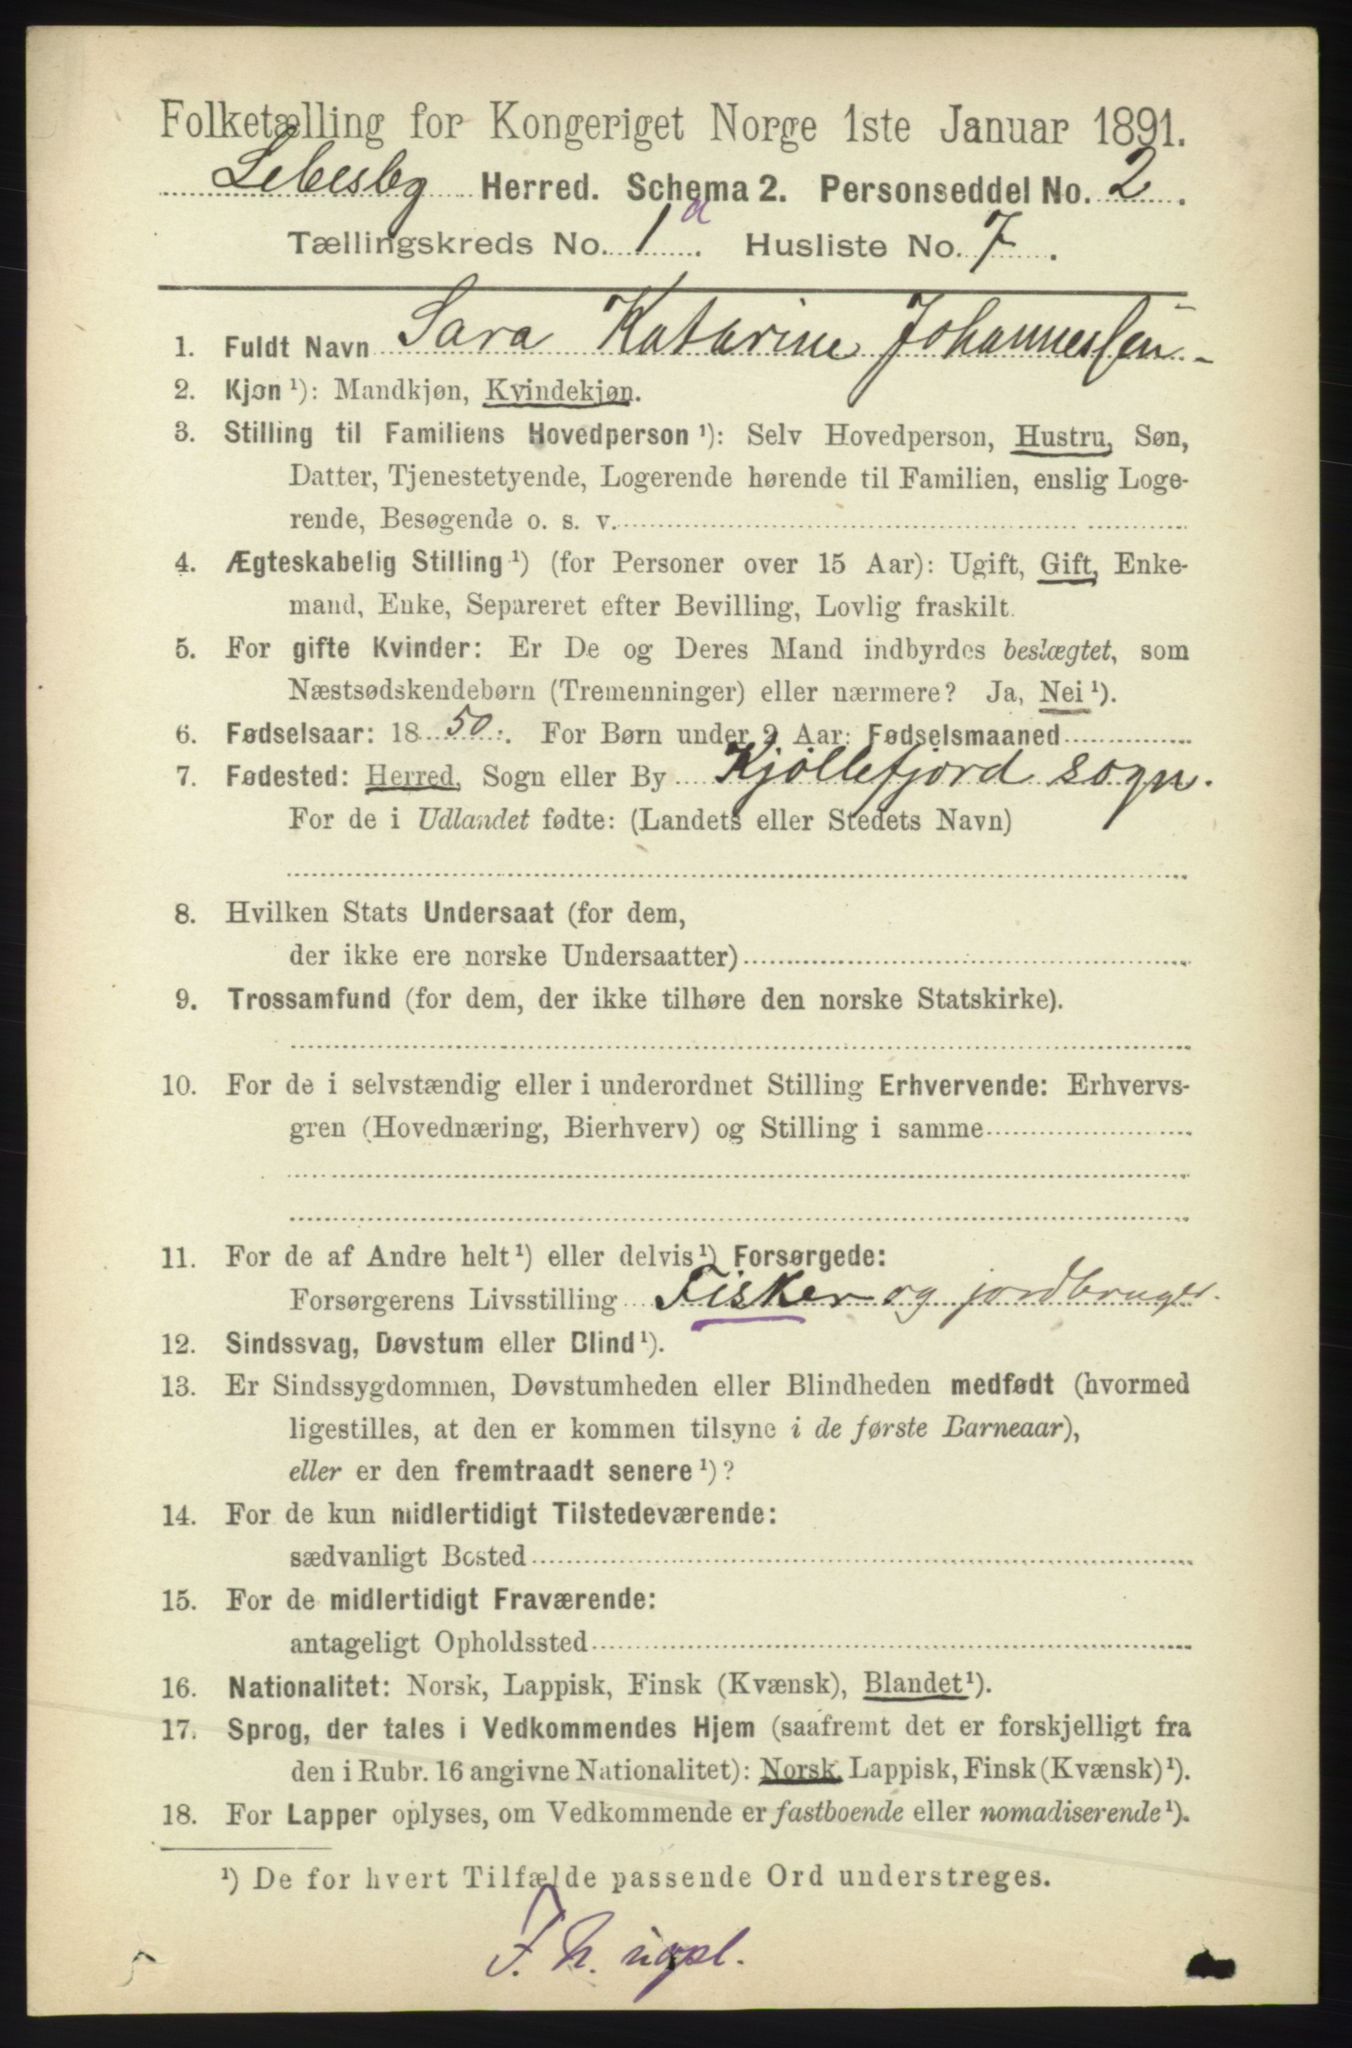 Folketælling for Kongeriget Norge 1ste Januar 1891.
Lebesby Herred. Schema 2. Personseddel No. 2.
Tællingskreds No. 1a. Husliste No. 7.
1. Fuldt Navn Sara Katarine Johannessen
2. Kjøn ¹): Mandkjøn, Kvindekjøn.
3. Stilling til Familiens Hovedperson ¹): Selv Hovedperson, Hustru, Søn,
Datter, Tjenestetyende, Logerende hørende til Familien, enslig Loge-
rende, Besøgende o. s. v.
4. Ægteskabelig Stilling ¹) (for Personer over 15 Aar): Ugift, Gift, Enke-
mand, Enke, Separeret efter Bevilling, Lovlig fraskilt.
5. For gifte Kvinder: Er De og Deres Mand indbyrdes beslægtet, som
Næstsødskendebørn (Tremenninger) eller nærmere? Ja, Nei ¹).
6. Fødselsaar: 1850. For Børn under 2 Aar: Fødselsmaaned
7. Fødested: Herred, Sogn eller By Kjøllefjord sogn.
For de i Udlandet fødte: (Landets eller Stedets Navn)
8. Hvilken Stats Undersaat (for dem,
der ikke ere norske Undersaatter)
9. Trossamfund (for dem, der ikke tilhøre den norske Statskirke).
10. For de i selvstændig eller i underordnet Stilling Erhvervende: Erhvervs-
gren (Hovednæring, Bierhverv) og Stilling i samme
11. For de af Andre helt ¹) eller delvis ¹) Forsørgede:
Forsørgerens Livsstilling Fisker og jordbruger.
12. Sindssvag, Døvstum eller Blind ¹).
13. Er Sindssygdommen, Døvstumheden eller Blindheden medfødt (hvormed
ligestilles, at den er kommen tilsyne i de første Barneaar),
eller er den fremtraadt senere ¹)?
14. For de kun midlertidigt Tilstedeværende:
sædvanligt Bosted
15. For de midlertidigt Fraværende:
antageligt Opholdssted
16. Nationalitet: Norsk, Lappisk, Finsk (Kvænsk), Blandet ¹).
17. Sprog, der tales i Vedkommendes Hjem (saafremt det er forskjelligt fra
den i Rubr. 16 angivne Nationalitet): Norsk, Lappisk, Finsk (Kvænsk) ¹).
18. For Lapper oplyses, om Vedkommende er fastboende eller nomadiserende ¹).
¹) De for hvert Tilfælde passende Ord understreges.
F. N. uopl.